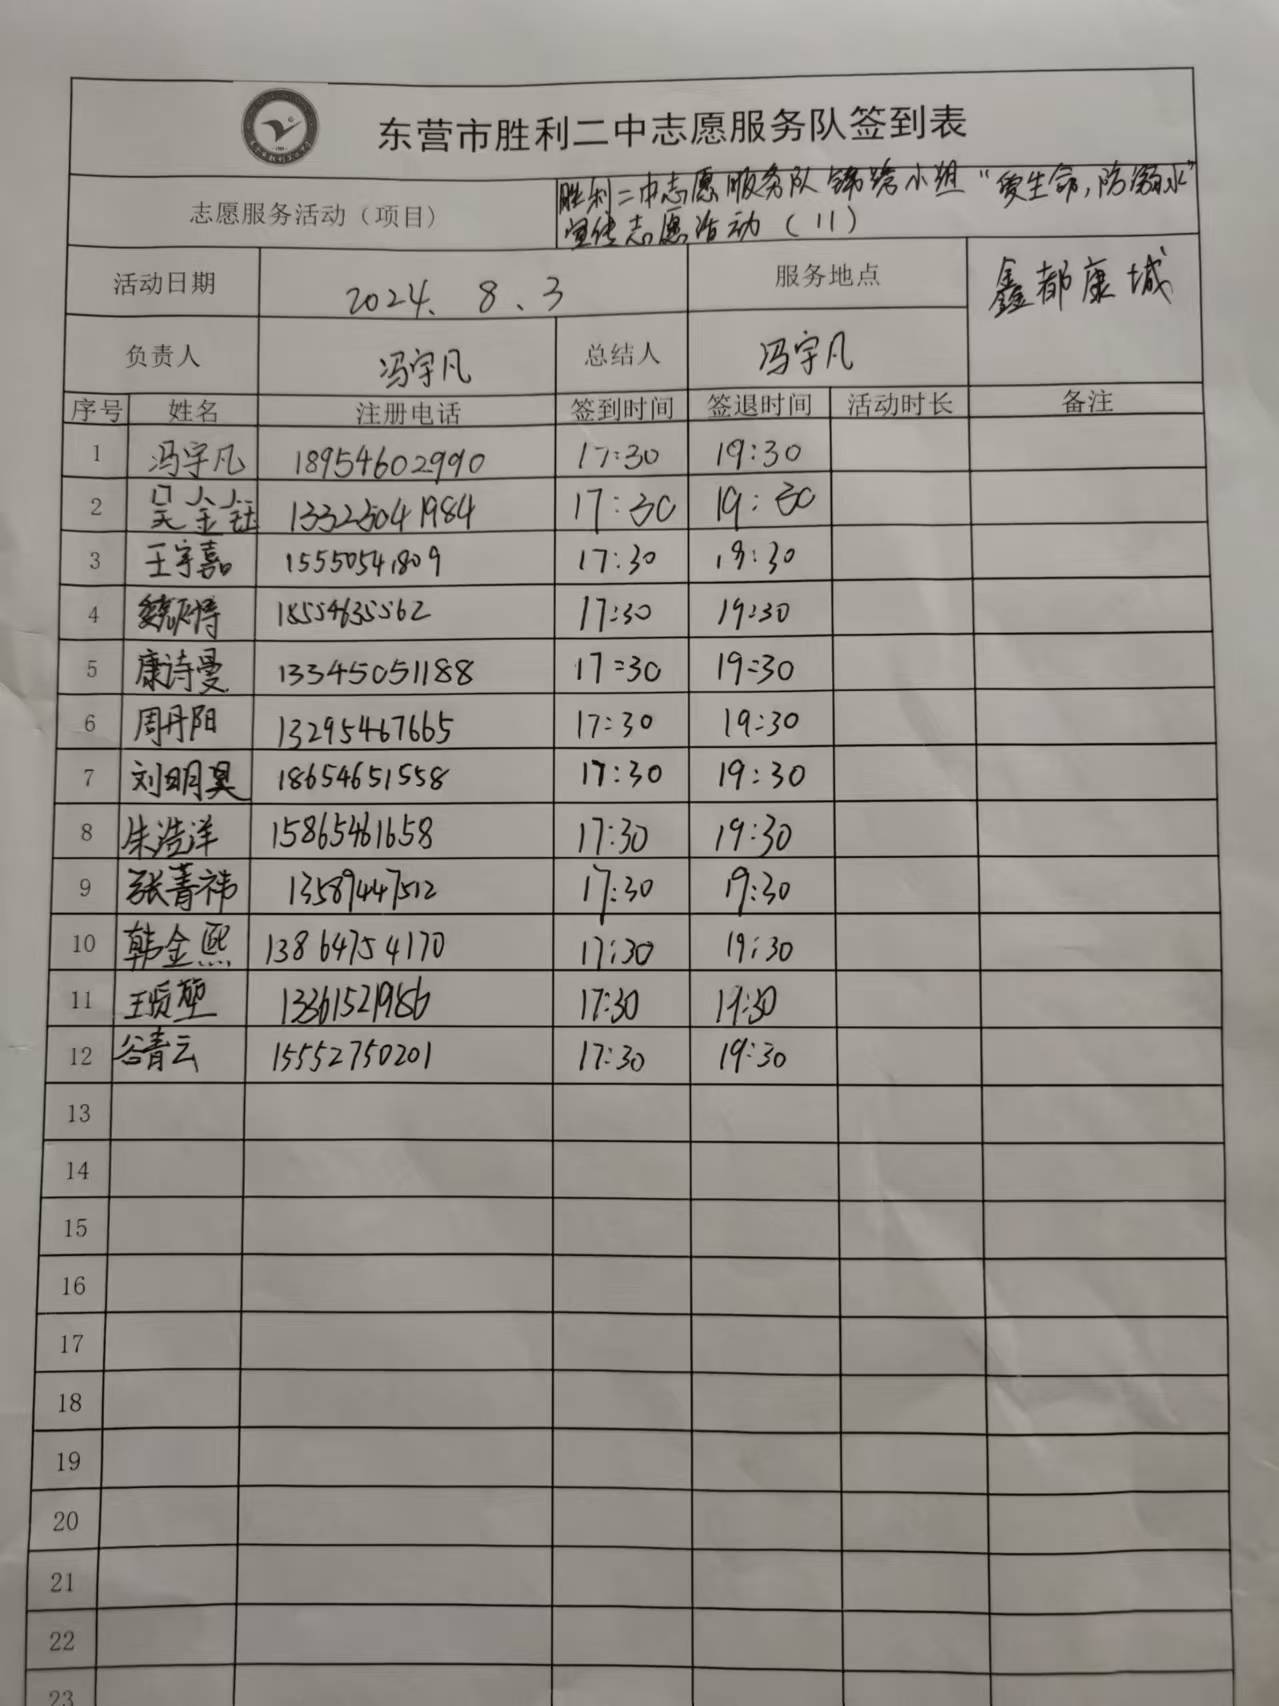 东营市胜利二中志愿服务队签到表
志愿服务活动（项目） 胜利二中志愿服务队锦湾小组“爱生命,防溺水”
宣传志愿活动（11）
活动日期 2024. 8. 3 服务地点 鑫都康城
负责人 冯宇凡 总结人 冯宇凡
序号 姓名 注册电话 签到时间 签退时间 活动时长 备注
1 冯宇凡 18954602990 17:30 19:30
2 吴金钰 13325041984 17:30 19:30
3 王宇嘉 15550541809 17:30 19:30
4 18554635562 17:30 19:30
5 康诗曼 13345051188 17:30 19:30
6 周丹阳 13295467665 17:30 19:30
7 刘明昊 18654651558 17:30 19:30
8 朱浩洋 15865461658 17:30 19:30
9 张菁祎 13589447512 17:30 19:30
10 韩金熙 13864754170 17:30 19:30
11 13361521986 17:30 19:30
12 谷青云 15552750201 17:30 19:30
13
14
15
16
17
18
19
20
21
22
23